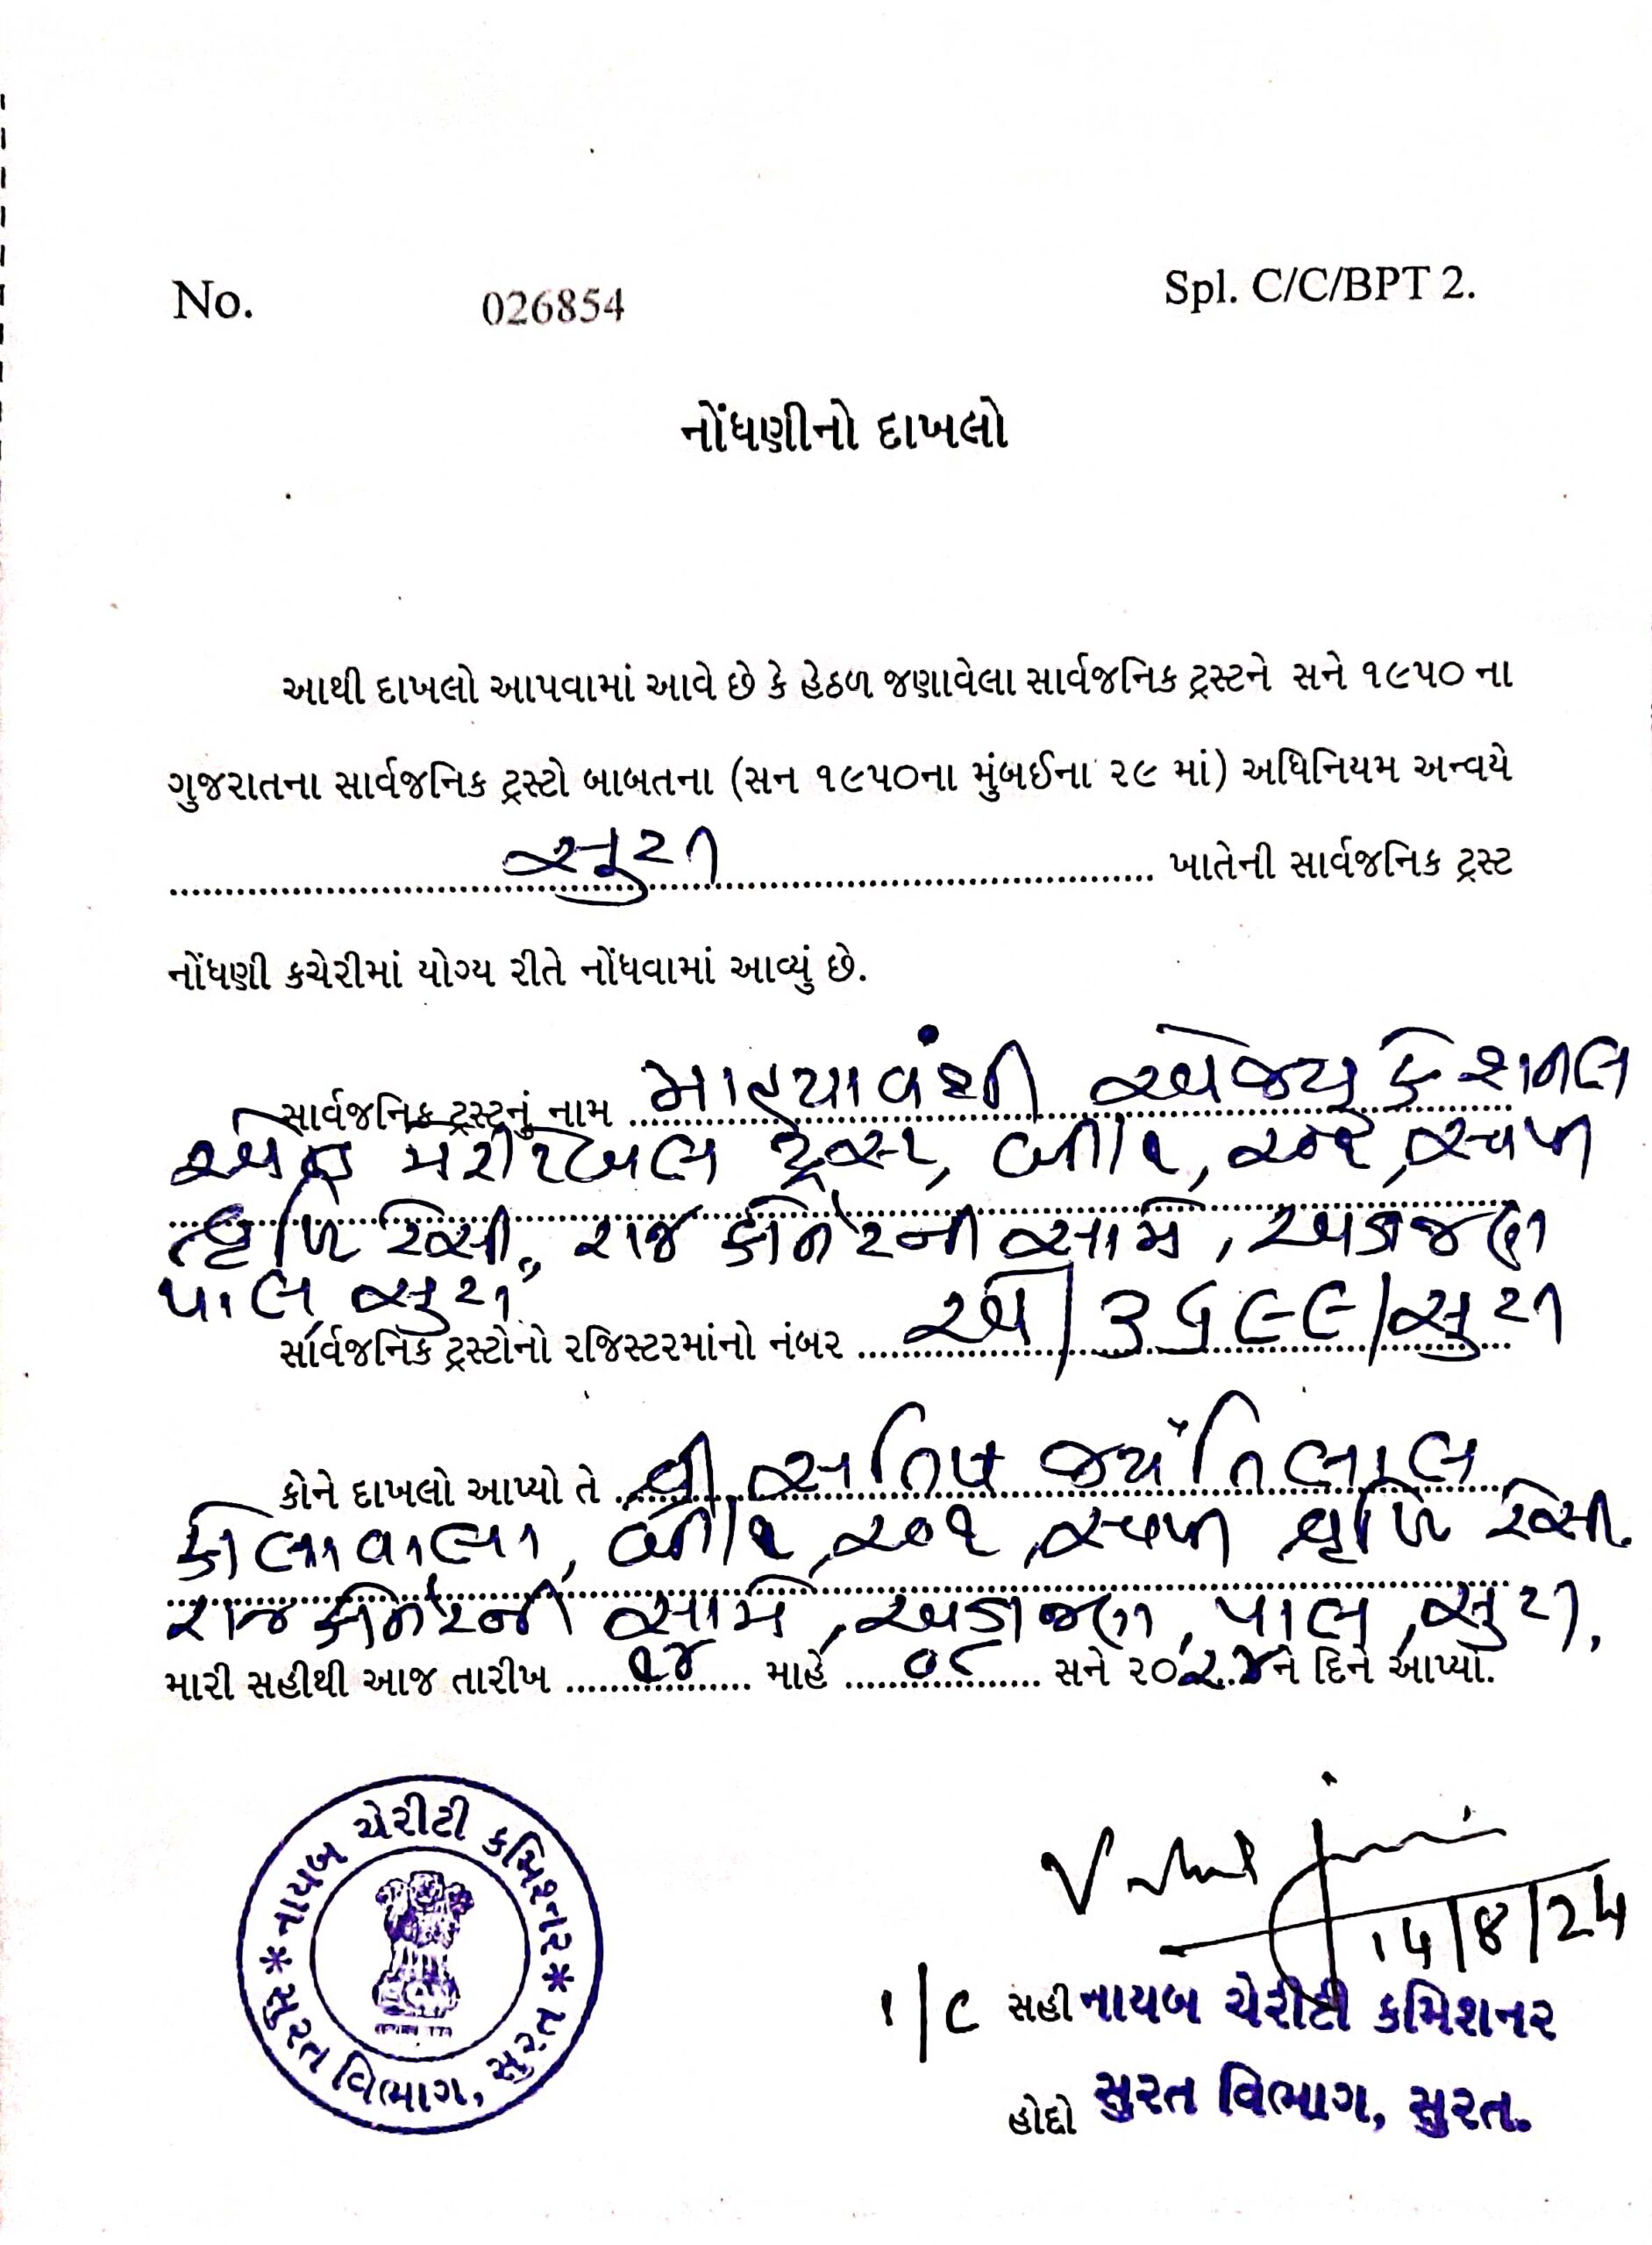 No. 026854 Spl. C/C/BPT 2.
નોંધણીનો દાખલો
આથી દાખલો આપવામાં આવે છે કે હેઠળ જણાવેલા સાર્વજનિક ટ્રસ્ટને સને ૧૯૫૦ ના
ગુજરાતના સાર્વજનિક ટ્રસ્ટો બાબતના (સન ૧૯૫૦ના મુંબઈના ૨૯ માં) અધિનિયમ અન્વયે
સુરત ખાતેની સાર્વજનિક ટ્રસ્ટ
નોંધણી કચેરીમાં યોગ્ય રીતે નોંધવામાં આવ્યું છે.
સાર્વજનિક ટ્રસ્ટનું નામ માહ્યાવંશી એજ્યુકેશનલ
એન્ડ ચેરીટેબલ ટ્રસ્ટ, બી/૧, ૨૦૧, સ્વપ્ન
સૃષ્ટિ રેસી., રાજ કોર્નરની સામે, અડાજણ
પાલ, સુરત
સાર્વજનિક ટ્રસ્ટોનો રજિસ્ટરમાંનો નંબર એ/૩૬૯૯/સુરત
કોને દાખલો આપ્યો તે શ્રી સતિષ જયંતિલાલ
કોલાવાલા, બી/૧, ૨૦૧, સ્વપ્ન સૃષ્ટિ રેસી.
રાજ કોર્નરની સામે, અડાજણ, પાલ, સુરત.
મારી સહીથી આજ તારીખ ૧૪ માહે ૦૮ સને ૨૦૨૪ને દિને આપ્યો.
નાયબ ચેરીટી કમિશ્નર
* સુરત વિભાગ, સુરત *
14/8/24
I/C સહી નાયબ ચેરીટી કમિશનર
હોદ્દો સુરત વિભાગ, સુરત.